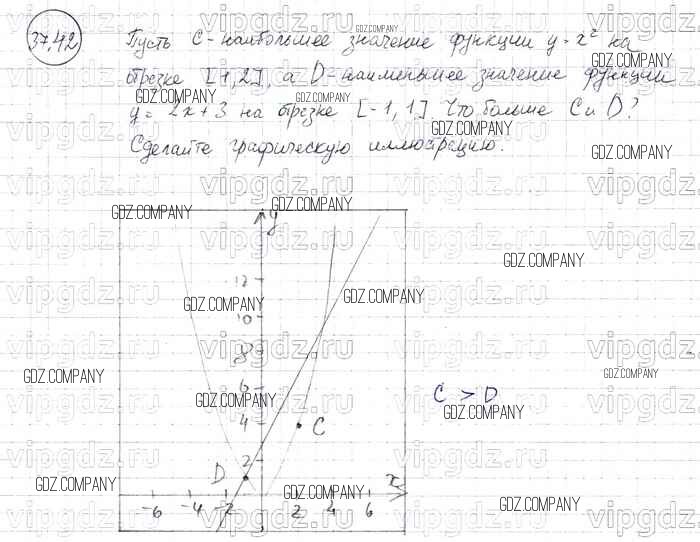 37.42
Пусть C-наибольшее значение функции y=x² на
отрезке [1,2], а D-наименьшее значение функции
y=2x+3 на отрезке [-1,1]. Что больше C и D?
Сделайте графическую иллюстрацию.
y
12
10
8
6
4
2
C
D
x
-6 -4 -2 2 4 6
C > D
GDZ.COMPANY
vipgdz.ru